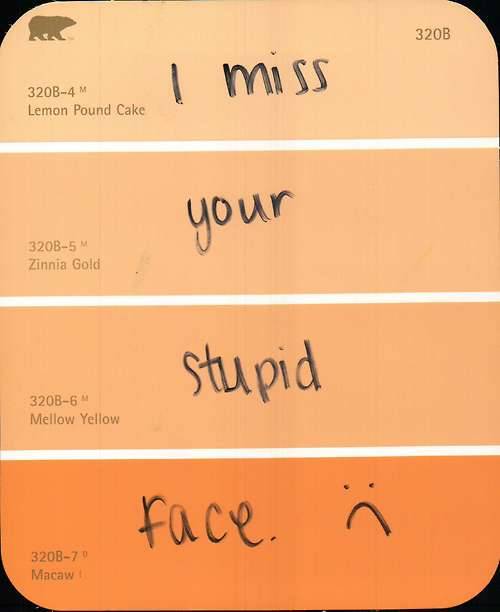 320B
320B-4 M
Lemon Pound Cake
I miss
320B-5 M
Zinnia Gold
your
320B-6 M
Mellow Yellow
stupid
320B-7 D
Macaw
face. :(